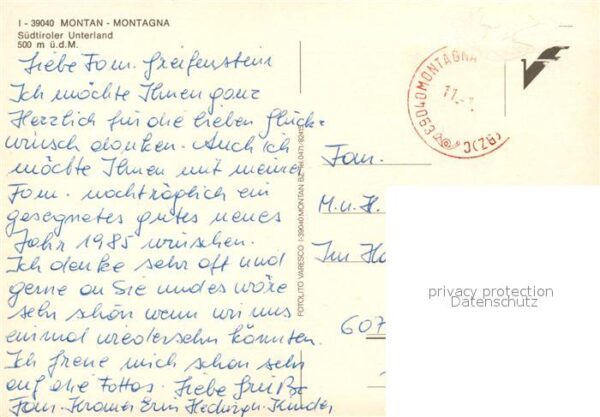 I - 39040 MONTAN - MONTAGNA
Südtiroler Unterland
500 m ü.d.M.
Liebe Fam. Greifenstein
Ich möchte Ihnen ganz
Herzlich für die lieben Glück-
wünsch danken. Auch ich
möchte Ihnen mit meiner
Fam. nachträglich ein
gesegnetes gutes neues
Jahr 1985 wünschen.
Ich denke sehr oft und
gerne an Sie und es wäre
sehr schön wenn wir uns
einmal wiedersehn könnten.
Ich freue mich schon sehr
auf die Fottos. Liebe Grüße
Fam. Kramer Erm Hedwig Kinder
FOTOLITO VARESCO I-39040 MONTAN BZ
39040 MONTAGNA
(BZ)C
11.-1.
Fam.
M. u. H.
Im Ha
607
privacy protection
Datenschutz